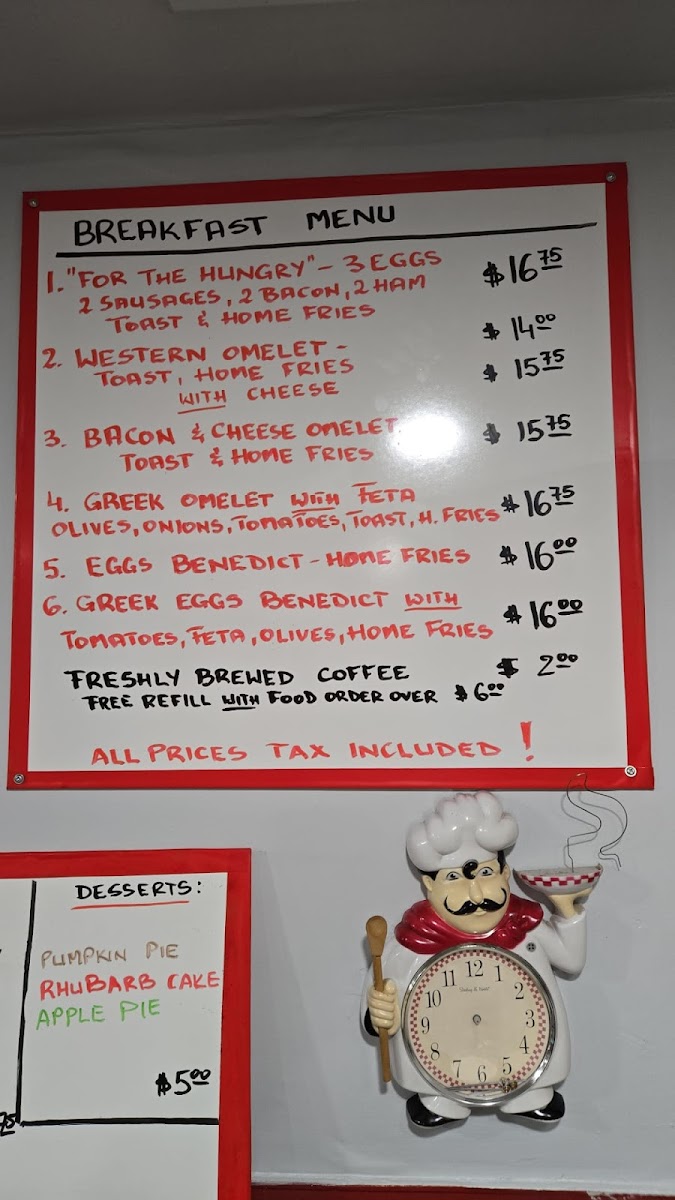 BREAKFAST MENU
1. "FOR THE HUNGRY" - 3 EGGS $16 75
2 SAUSAGES, 2 BACON, 2 HAM
TOAST & HOME FRIES
2. WESTERN OMELET - $ 14 00
TOAST, HOME FRIES $ 15 75
WITH CHEESE
3. BACON & CHEESE OMELET $ 15 75
TOAST & HOME FRIES
4. GREEK OMELET WITH FETA $ 16 75
OLIVES, ONIONS, TOMATOES, TOAST, H. FRIES
5. EGGS BENEDICT - HOME FRIES $ 16 00
6. GREEK EGGS BENEDICT WITH $ 16 00
TOMATOES, FETA, OLIVES, HOME FRIES
FRESHLY BREWED COFFEE $ 2 00
FREE REFILL WITH FOOD ORDER OVER $ 6 00
ALL PRICES TAX INCLUDED !
DESSERTS:
PUMPKIN PIE
RHUBARB CAKE
APPLE PIE
$5 00
75
12 1 2 3 4 5 6 7 8 9 10 11